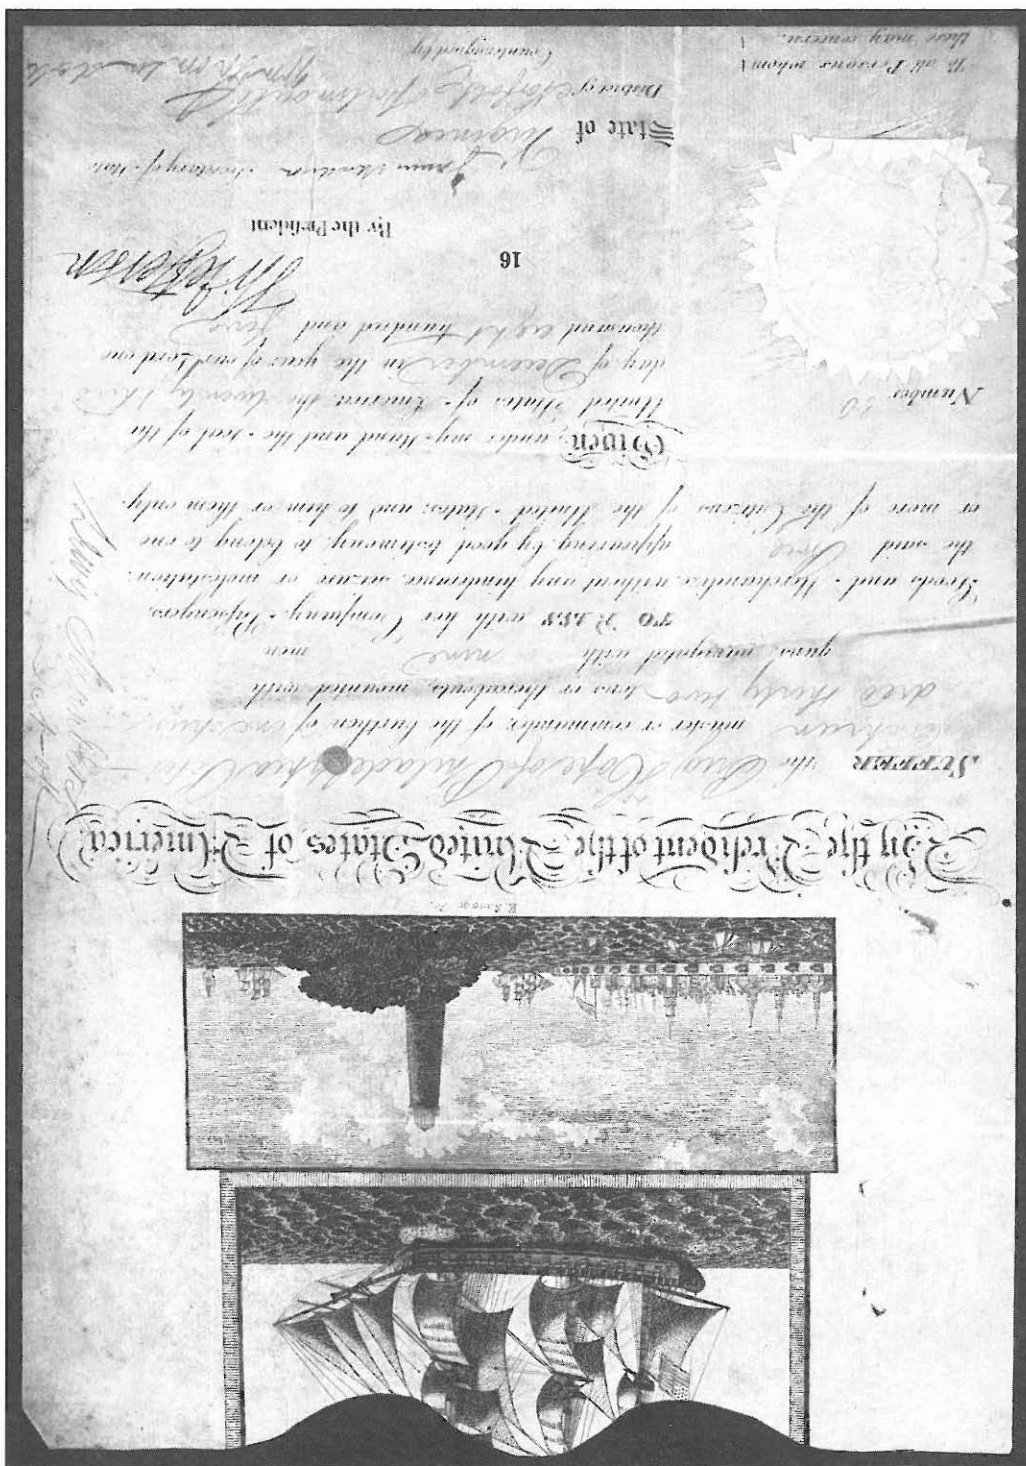 By the President of the United States of America.
SUFFER the Brig Hope of Philadelphia
master or commander, of the burthen of one hun
dred thirty two tons or thereabouts, mounted with
guns, navigated with nine men
TO PASS with her Company, Passengers,
Goods and Merchandize, without any hindrance, seizure or molestation:
the said appearing by good testimony, to belong to one
or more of the Citizens of the United States; and to him or them only.
Given under my Hand and the Seal of the
United States of America the twenty third
day of December in the year of our Lord one
thousand eight hundred and five
Number
16
Th Jefferson
By the President
James Madison Secretary of State
State of Virginia
District of Norfolk & Portsmouth
Countersigned by
To all Persons whom
these may concern.